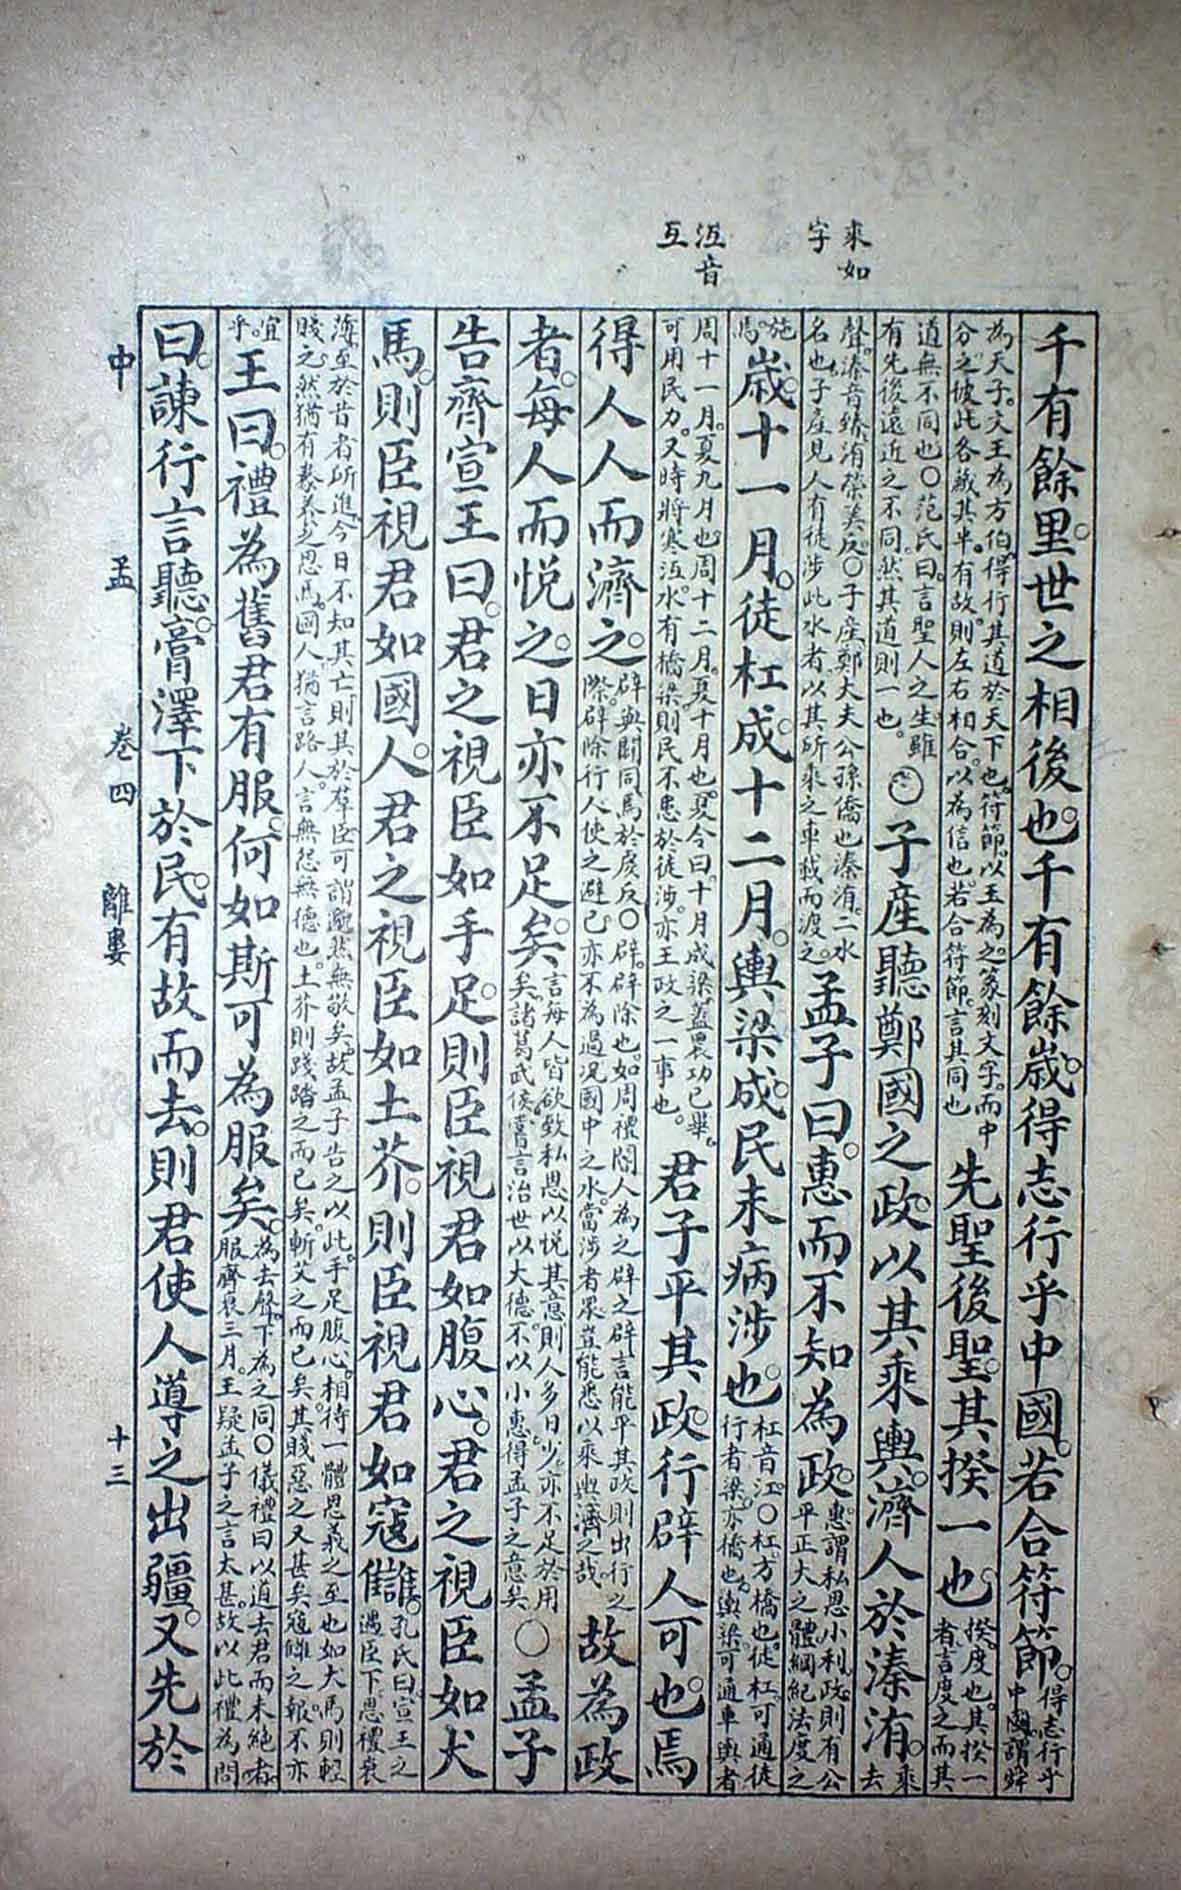 乘如
字
沍音
互
千有餘里。世之相後也。千有餘歲。得志行乎中國。若合符節。
得志行乎
中國謂舜
為天子。文王為方伯。得行其道於天下也。符節。以玉為之。篆刻文字。而中
分之。彼此各藏其半。有故。則左右相合。以為信也。若合符節。言其同也
先聖後聖。其揆一也。
揆。度也。其揆一
者。言度之而其
道無不同也。○范氏曰。言聖人之生。雖
有先後遠近之不同。然其道則一也。
○子產聽鄭國之政。以其乘輿。濟人於溱洧。
乘
去
聲。溱音臻。洧榮美反。○子產。鄭大夫公孫僑也。溱洧。二水
名也。子產見人有徒涉此水者。以其所乘之車載而渡之。
孟子曰。惠而不知為政。
惠謂私恩小利。政則有公
平正大之體綱紀法度之
施
焉。
歲十一月。徒杠成。十二月。輿梁成。民未病涉也。
杠音江。○杠。方橋也。徒杠。可通徒
行者。梁。亦橋也。輿梁。可通車輿者
周十一月。夏九月也。周十二月。夏十月也。夏令曰。十月成梁。蓋農功已畢。
可用民力。又時將寒沍。水有橋梁。則民不患於徒涉。亦王政之一事也。
君子平其政。行辟人可也。焉
得人人而濟之。
辟與闢同。焉於虔反。○辟。辟除也。如周禮閽人為之辟之辟言能平其政則出行之
際。辟除行人。使之避己。亦不為過。況國中之水。當涉者眾。豈能悉以乘輿濟之哉。
故為政
者。每人而悅之。日亦不足矣。
言每人皆欲致私恩。以悅其意。則人多日少。亦不足於用
矣。諸葛武侯嘗言治世以大德。不以小惠。得孟子之意矣
○孟子
告齊宣王曰。君之視臣如手足。則臣視君如腹心。君之視臣如犬
馬。則臣視君如國人。君之視臣如土芥。則臣視君如寇讎。
孔氏曰。宣王之
遇臣下。恩禮衰
薄。至於昔者所進。今日不知其亡。則其於羣臣。可謂邈然無敬矣。故孟子告之以此。手足腹心。相待一體恩義之至也如犬馬。則輕
賤之。然猶有豢養之恩焉。國人。猶言路人。言無怨無德也。土芥則踐踏之而已矣。斬艾之而已矣。其賤惡之又甚矣。寇讎之報。不亦
宜
乎。
王曰。禮為舊君有服。何如斯可為服矣。
為去聲。下為之同○儀禮曰以道去君而未絕者。
服齊衰三月。王疑孟子之言太甚。故以此禮為問
曰。諫行言聽。膏澤下於民。有故而去。則君使人導之出疆。又先於
中 孟 卷四 離婁 十三